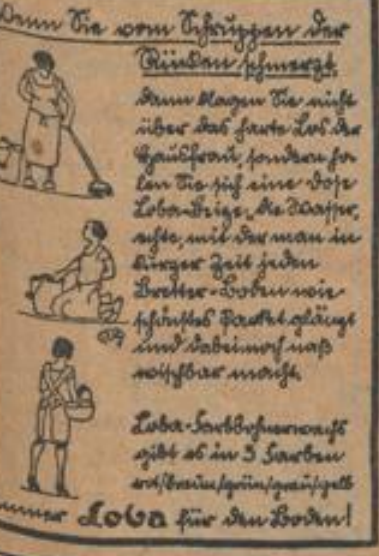 Wenn Sie vom Schruppen der
Rücken schmerzt,
dann klagen Sie nicht
über das harte Los der
Hausfrau, sondern ho-
len Sie sich eine Dose
Loba-Beize, die Wasser-
echte, mit der man in
kurzer Zeit jeden
Bretter-Boden wie
schönstes Parkett glänzt
und dabei noch naß
wischbar macht.
Loba-Farbbohnerwachs
gibt es in 5 Farben
rot/braun/grün/grau/gelb
immer Loba für den Boden!